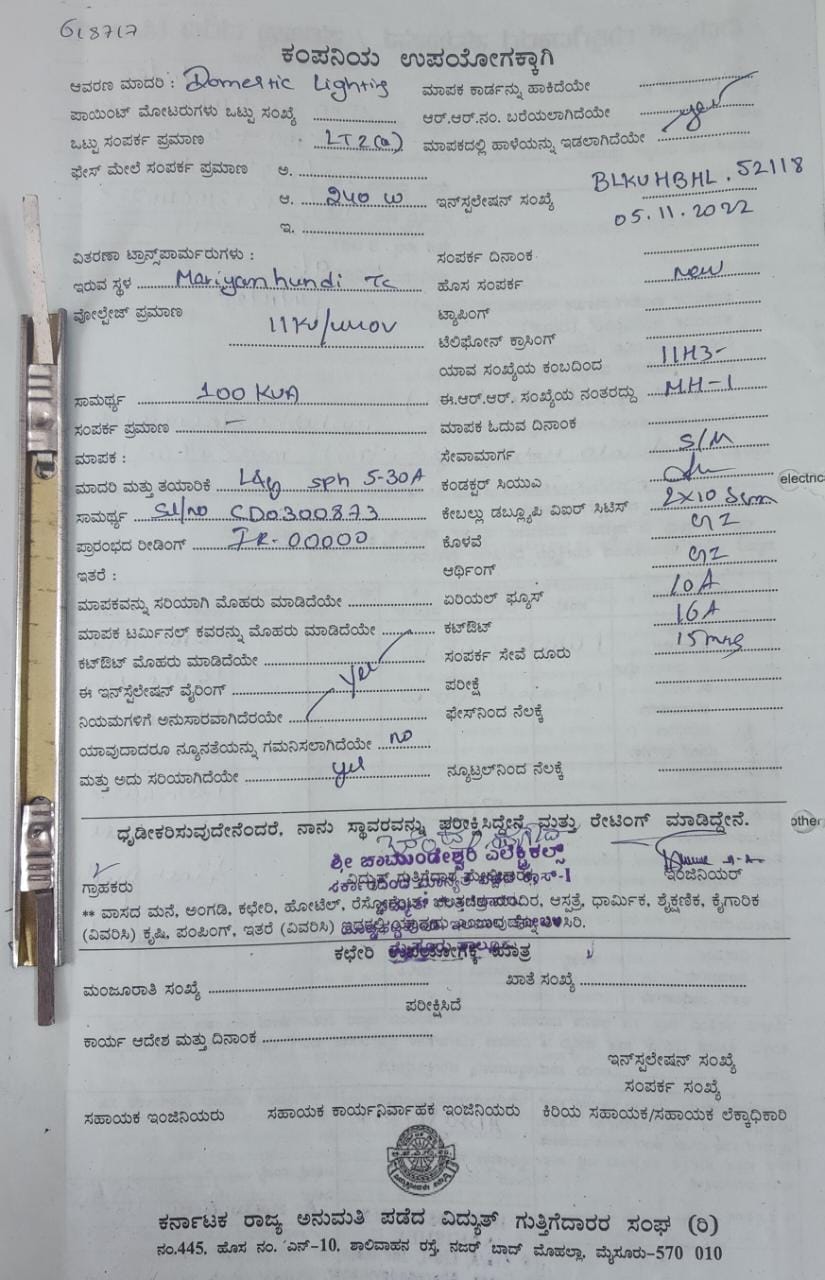 618717
ಕಂಪನಿಯ ಉಪಯೋಗಕ್ಕಾಗಿ
ಆವರಣ ಮಾದರಿ : Domestic Lighting
ಮಾಪಕ ಕಾರ್ಡನ್ನು ಹಾಕಿದೆಯೇ
ಪಾಯಿಂಟ್ ಮೋಟರುಗಳು ಒಟ್ಟು ಸಂಖ್ಯೆ
ಆರ್.ಆರ್.ನಂ. ಬರೆಯಲಾಗಿದೆಯೇ yes
ಒಟ್ಟು ಸಂಪರ್ಕ ಪ್ರಮಾಣ LT2(a)
ಮಾಪಕದಲ್ಲಿ ಹಾಳೆಯನ್ನು ಇಡಲಾಗಿದೆಯೇ
ಫೇಸ್ ಮೇಲೆ ಸಂಪರ್ಕ ಪ್ರಮಾಣ ಅ.
ಆ. ೨೪೦ W
ಇನ್‌ಸ್ಟಲೇಷನ್ ಸಂಖ್ಯೆ BLKUHBHL.52118
05.11.2022
ಇ.
ವಿತರಣಾ ಟ್ರಾನ್ಸ್‌ಪಾರ್ಮರುಗಳು :
ಸಂಪರ್ಕ ದಿನಾಂಕ
ಇರುವ ಸ್ಥಳ Mariyanhundi Tc
ಹೊಸ ಸಂಪರ್ಕ New
ವೋಲ್ಟೇಜ್ ಪ್ರಮಾಣ 11KV/440V
ಟ್ಯಾಪಿಂಗ್
ಟೆಲಿಫೋನ್ ಕ್ರಾಸಿಂಗ್
ಯಾವ ಸಂಖ್ಯೆಯ ಕಂಬದಿಂದ 11H3-
ಸಾಮರ್ಥ್ಯ 100 KVA
ಈ.ಆರ್.ಆರ್. ಸಂಖ್ಯೆಯ ನಂತರದ್ದು MH-1
ಸಂಪರ್ಕ ಪ್ರಮಾಣ –
ಮಾಪಕ ಓದುವ ದಿನಾಂಕ
ಮಾಪಕ :
ಸೇವಾಮಾರ್ಗ S/M
ಮಾದರಿ ಮತ್ತು ತಯಾರಿಕೆ L&G sph 5-30A
ಕಂಡಕ್ಟರ್ ಸಿಯುವಿ
ಸಾಮರ್ಥ್ಯ Sl/no CD0300873
ಕೇಬಲ್ಲು ಡಬ್ಲ್ಯೂಪಿ ವಿಐರ್ ಸಿಟಿಸ್ 2X10 Sqmm
ಪ್ರಾರಂಭದ ರೀಡಿಂಗ್ IR-00000
ಕೊಳವೆ GI
ಇತರೆ :
ಆರ್ಥಿಂಗ್ GI
ಮಾಪಕವನ್ನು ಸರಿಯಾಗಿ ಮೊಹರು ಮಾಡಿದೆಯೇ
ಏರಿಯಲ್ ಫ್ಯೂಸ್ 10A
ಮಾಪಕ ಟರ್ಮಿನಲ್ ಕವರನ್ನು ಮೊಹರು ಮಾಡಿದೆಯೇ
ಕಟ್‌ಔಟ್ 16A
ಕಟ್‌ಔಟ್ ಮೊಹರು ಮಾಡಿದೆಯೇ
ಸಂಪರ್ಕ ಸೇವೆ ದೂರು 15mtrs
ಈ ಇನ್‌ಸ್ಟೆಲೇಷನ್ ವೈರಿಂಗ್ yes
ಪರೀಕ್ಷೆ
ನಿಯಮಗಳಿಗೆ ಅನುಸಾರವಾಗಿದೆರಯೇ
ಫೇಸ್‌ನಿಂದ ನೆಲಕ್ಕೆ
ಯಾವುದಾದರೂ ನ್ಯೂನತೆಯನ್ನು ಗಮನಿಸಲಾಗಿದೆಯೇ no
ಮತ್ತು ಅದು ಸರಿಯಾಗಿದೆಯೇ yes
ನ್ಯೂಟ್ರಲ್‌ನಿಂದ ನೆಲಕ್ಕೆ
ಧೃಡೀಕರಿಸುವುದೇನೆಂದರೆ, ನಾನು ಸ್ಥಾವರವನ್ನು ಪರೀಕ್ಷಿಸಿದ್ದೇನೆ ಮತ್ತು ರೇಟಿಂಗ್ ಮಾಡಿದ್ದೇನೆ.
ಶ್ರೀ ಚಾಮುಂಡೇಶ್ವರಿ ಎಲೆಕ್ಟ್ರಿಕಲ್ಸ್
ಗ್ರಾಹಕರು
ವಿದ್ಯುತ್ ಗುತ್ತಿಗೆದಾರ
ಇಂಜಿನಿಯರ್
** ವಾಸದ ಮನೆ, ಅಂಗಡಿ, ಕಛೇರಿ, ಹೋಟೆಲ್, ಆಸ್ಪತ್ರೆ, ಧಾರ್ಮಿಕ, ಶೈಕ್ಷಣಿಕ, ಕೈಗಾರಿಕ
(ವಿವರಿಸಿ) ಕೃಷಿ, ಪಂಪಿಂಗ್, ಇತರೆ (ವಿವರಿಸಿ)
ಕಛೇರಿ ಉಪಯೋಗಕ್ಕೆ ಮಾತ್ರ
ಮಂಜೂರಾತಿ ಸಂಖ್ಯೆ
ಖಾತೆ ಸಂಖ್ಯೆ
ಪರೀಕ್ಷಿಸಿದೆ
ಕಾರ್ಯ ಆದೇಶ ಮತ್ತು ದಿನಾಂಕ
ಇನ್‌ಸ್ಪಲೇಷನ್ ಸಂಖ್ಯೆ
ಸಂಪರ್ಕ ಸಂಖ್ಯೆ
ಸಹಾಯಕ ಇಂಜಿನಿಯರು ಸಹಾಯಕ ಕಾರ್ಯನಿರ್ವಾಹಕ ಇಂಜಿನಿಯರು ಕಿರಿಯ ಸಹಾಯಕ/ಸಹಾಯಕ ಲೆಕ್ಕಾಧಿಕಾರಿ
ಕರ್ನಾಟಕ ರಾಜ್ಯ ಅನುಮತಿ ಪಡೆದ ವಿದ್ಯುತ್ ಗುತ್ತಿಗೆದಾರರ ಸಂಘ (ರಿ)
ನಂ.445, ಹೊಸ ನಂ. ಎನ್-10, ಶಾಲಿವಾಹನ ರಸ್ತೆ, ನಜರ್ ಬಾದ್ ಮೊಹಲ್ಲಾ, ಮೈಸೂರು-570 010
electric
other